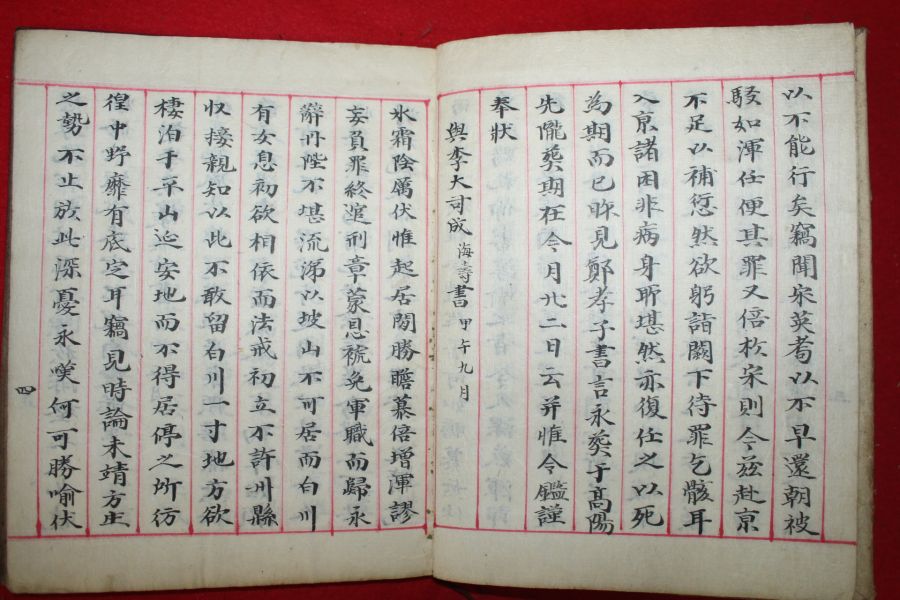 以不能行矣竊聞宋英耈以不早還朝被
駁如渾任便其罪又倍於宋則今玆赴京
不足以補愆然欲躬詣闕下待罪乞骸耳
入京諸困非病身所堪然亦復任之以死
為期而已昨見鄭孝子書言永葬于高陽
先隴葬期在今月廿二日云并惟令鑑謹
奉狀
與李大司成海壽書甲午九月
氷霜陰厲伏惟起居閒勝瞻慕倍增渾謬
妄負罪終逭刑章蒙恩褫免軍職而歸永
辭丹陛不堪流涕以坡山不可居而白川
有女息初欲相依而法戒初立不許州縣
収接親知以此不敢留白川一寸地方欲
棲泊于平山延安地而不得居停之所彷
徨中野靡有底定耳竊見時論未靖方生
之勢不止於此深憂永嘆何可勝喻伏
四